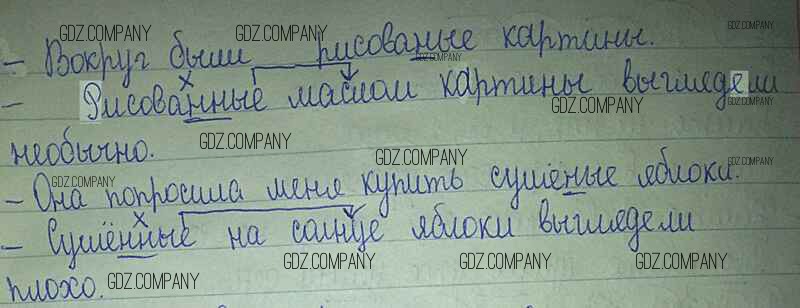 GDZ.COMPANY GDZ.COMPANY GDZ.COMPANY
- Вокруг были рисованые картины.
GDZ.COMPANY
- Рисованные маслом картины выглядели
GDZ.COMPANY GDZ.COMPANY
необычно. GDZ.COMPANY GDZ.COMPANY GDZ.COMPANY
GDZ.COMPANY
- Она попросила меня купить сушёные яблоки.
- Сушённые на солнце яблоки выглядели
плохо. GDZ.COMPANY GDZ.COMPANY GDZ.COMPANY GDZ.COMPANY